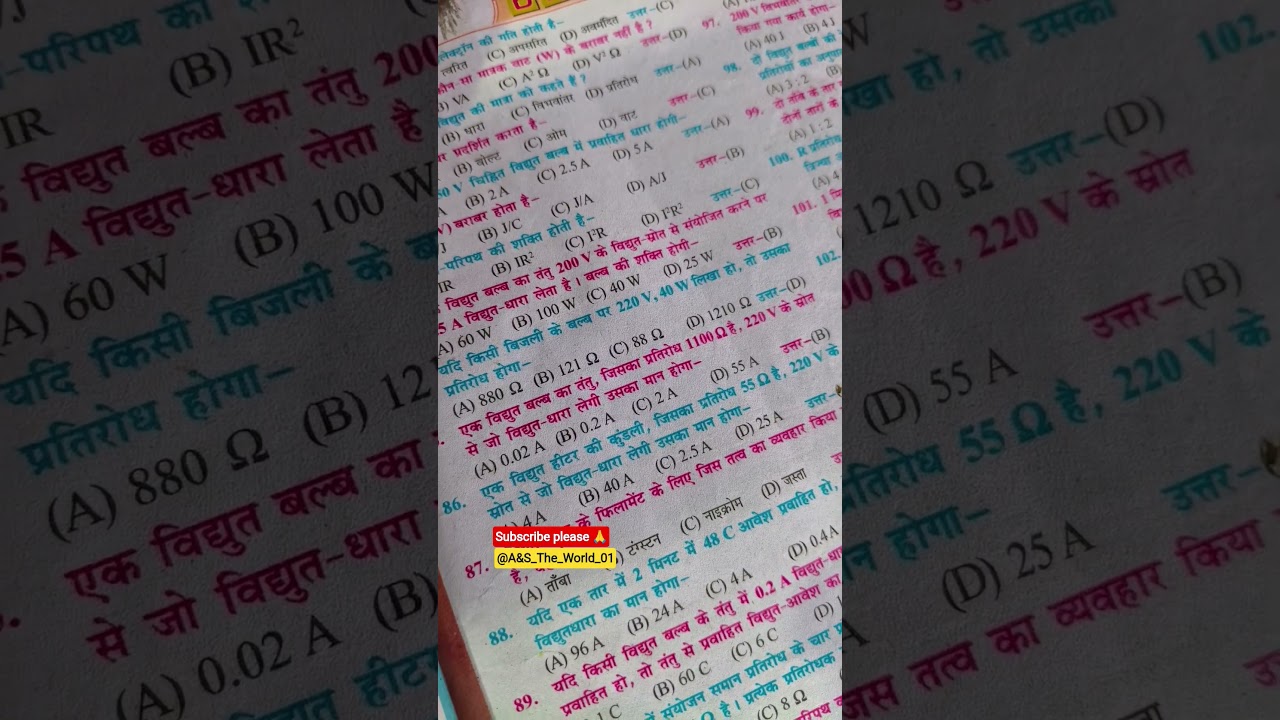 लेक्ट्रॉन की गति होती है–
त्वरित (C) अपसरित (D) अवमंदित उत्तर–(C)
मात्रक वाट (W) के बराबर नहीं है ?
VA (C) A² Ω (D) V² Ω उत्तर–(D)
विद्युत की मात्रा को कहते हैं ?
(B) धारा (C) विभवांतर (D) प्रतिरोध उत्तर–(A)
प्रदर्शित करता है–
(B) वोल्ट (C) ओम (D) वाट उत्तर–(C)
0 V चिह्नित विद्युत बल्ब में प्रवाहित धारा होगी–
(B) 2 A (C) 2.5 A (D) 5 A उत्तर–(A)
V) बराबर होता है–
(B) J/C (C) J/A (D) A/J उत्तर–(B)
-परिपथ की शक्ति होती है–
IR (B) IR² (C) I²R (D) I²R² उत्तर–(C)
विद्युत बल्ब का तंतु 200 V के विद्युत-स्रोत से संयोजित करने पर
5 A विद्युत-धारा लेता है । बल्ब की शक्ति होगी–
A) 60 W (B) 100 W (C) 40 W (D) 25 W उत्तर–(B)
यदि किसी बिजली के बल्ब पर 220 V, 40 W लिखा हो, तो उसका
प्रतिरोध होगा–
(A) 880 Ω (B) 121 Ω (C) 88 Ω (D) 1210 Ω उत्तर–(D)
एक विद्युत बल्ब का तंतु, जिसका प्रतिरोध 1100 Ω है, 220 V के स्रोत
से जो विद्युत-धारा लेगी उसका मान होगा–
(A) 0.02 A (B) 0.2 A (C) 2 A (D) 55 A उत्तर–(B)
86. एक विद्युत हीटर की कुंडली, जिसका प्रतिरोध 55 Ω है, 220 V के
स्रोत से जो विद्युत-धारा लेगी उसका मान होगा–
4 A (B) 40 A (C) 2.5 A (D) 25 A उत्तर–
87. के फिलामेंट के लिए जिस तत्व का व्यवहार किया
है,
(A) ताँबा टंग्स्टन (C) नाइक्रोम (D) जस्ता
88. यदि एक तार में 2 मिनट में 48 C आवेश प्रवाहित हो,
विद्युतधारा का मान होगा–
(A) 96 A (B) 24 A (C) 4 A (D) 0.4 A
89. यदि किसी विद्युत बल्ब के तंतु में 0.2 A विद्युत-धा
प्रवाहित हो, तो तंतु से प्रवाहित विद्युत-आवेश का
1 C (B) 60 C (C) 6 C (D)
संयोजन समान प्रतिरोध के चार
Ω है । प्रत्येक प्रतिरोधक
(C) 8 Ω
97. 200 V
किया गया कार्य होगा–
(A) 40 J (B) 4 J
98. दो विद्युत बल्बों की
प्रतिरोधों का अनुपा
(A) 3 : 2 (B)
99. दो ताँबे के तार
दोनों तारों के
(A) 1 : 2
100. R प्रतिरो
(A) 4
101. 1
102.
Subscribe please 🙏
@A&S_The_World_01